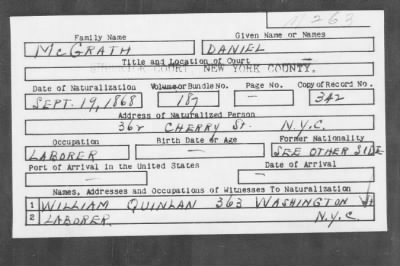 263
Family Name Given Name or Names
McGRATH DANIEL
Title and Location of Court
SUPERIOR COURT NEW YORK COUNTY.
Date of Naturalization Volume or Bundle No. Page No. Copy of Record No.
SEPT. 19, 1868 187 — 342
Address of Naturalized Person
362 CHERRY St. N.Y.C.
Occupation Birth Date or Age Former Nationality
LABORER — SEE OTHER SIDE
Port of Arrival in the United States Date of Arrival
— —
Names, Addresses and Occupations of Witnesses To Naturalization
1 WILLIAM QUINLAN 363 WASHINGTON St
2 LABORER. N.Y.C.